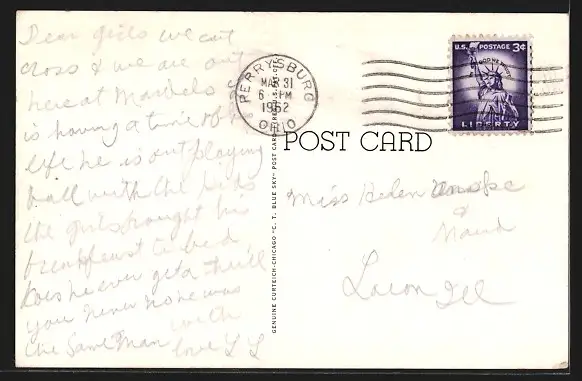 Dear girls we cut
cross & we are out
here at Marshels
is having a time of his
life he is out playing
ball with the kids
the girls brought his
breakfeast to bed
Does he ever get a thrill
you never no he was
the same man with
love
PERRYSBURG
MAR 31
6 PM
1962
OHIO
U.S. POSTAGE 3¢
IN GOD WE TRUST
LIBERTY
POST CARD
Miss Helen
&
Maud
Lacon Ill
GENUINE CURTEICH-CHICAGO "C. T. BLUE SKY" POST CARD REG. U.S. PAT. OFF.